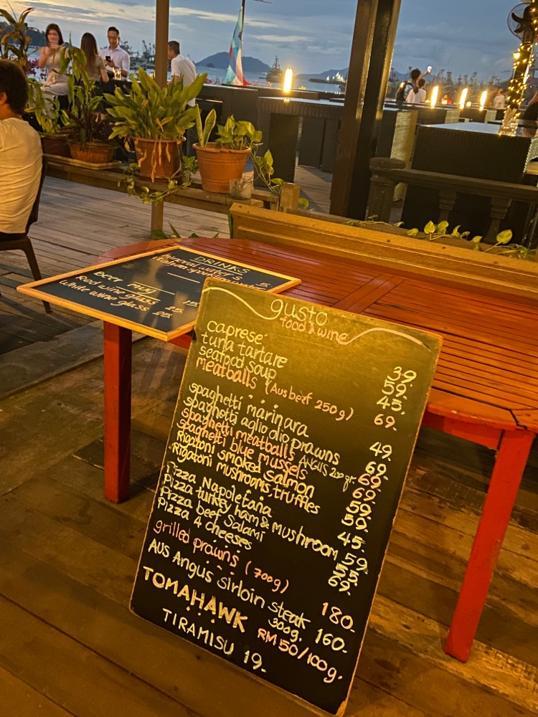 DRINKS
BEER
Red wine glass
White wine glass
gusto
food & wine
caprese 39.
tuna tartare 59.
seafood soup 45.
meatballs (Aus beef 250g) 69.
spaghetti marinara 49.
spaghetti aglio olio prawns 69.
spaghetti meatballs ANGUS 250gr. 69.
spaghetti blue mussels 59.
Rigatoni smoked salmon 59.
Rigatoni mushrooms, truffles 59.
Pizza Napoletana 45.
Pizza turkey ham & mushroom 59.
Pizza beef salami 55.
Pizza 4 cheeses 69.
grilled prawns (700g) 180.
Aus Angus sirloin steak 300g. 160.
TOMAHAWK RM 50/100g.
TIRAMISU 19.-